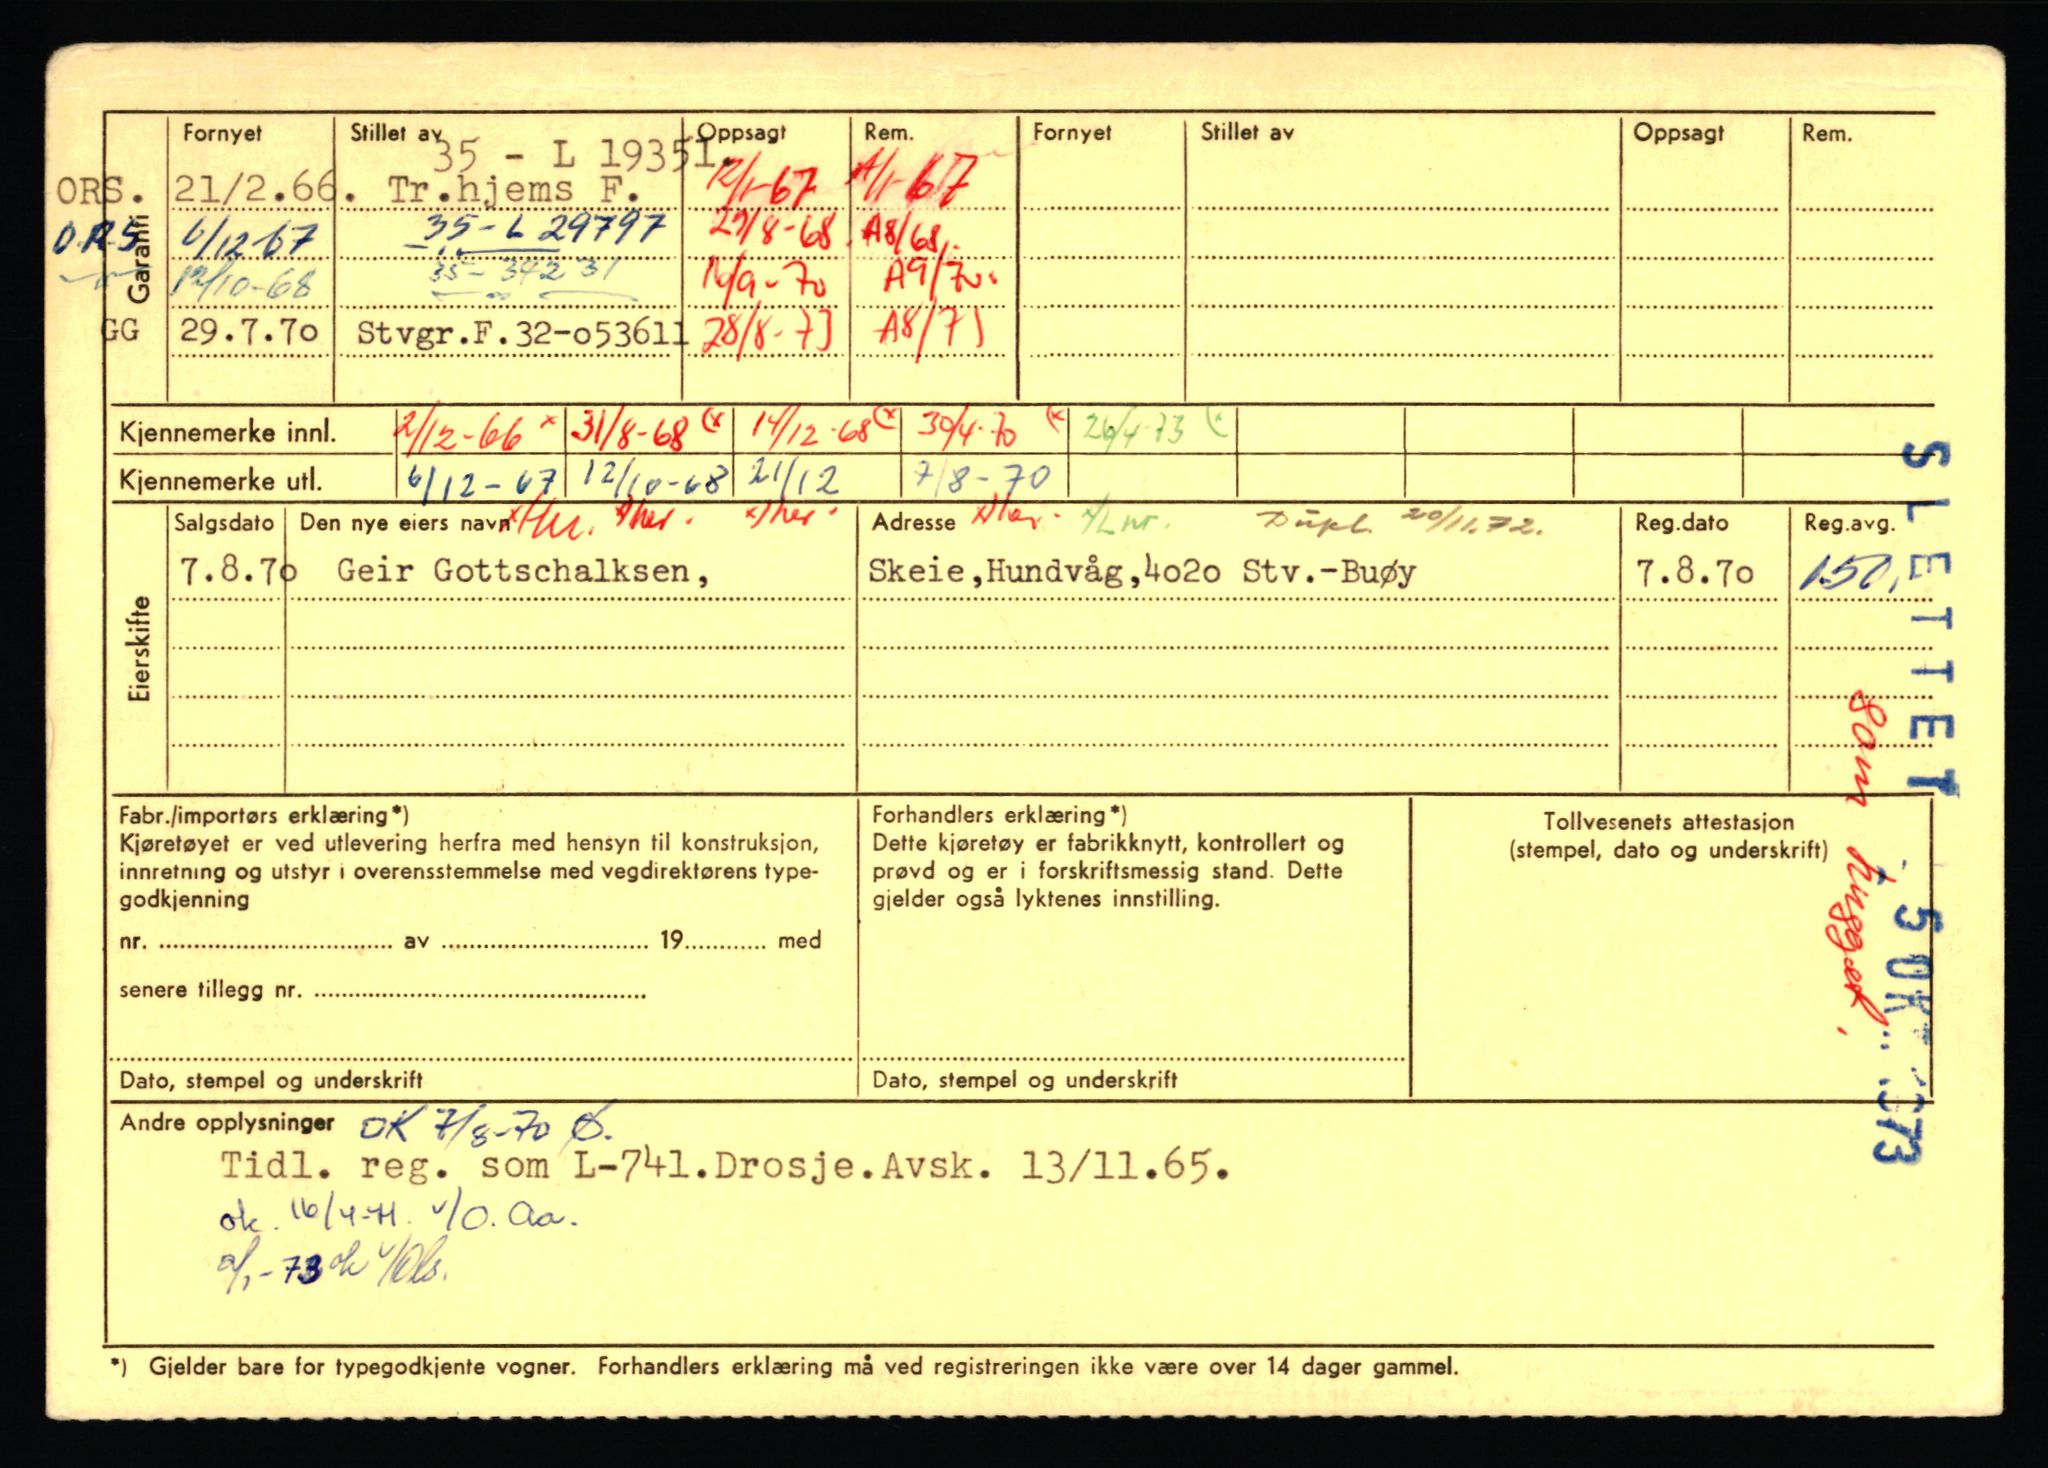 Fornyet Stillet av Oppsagt Rem. Fornyet Stillet av Oppsagt Rem.
35 - L 19351.
ORS. 21/2.66. Tr.hjems F. 12/1-67 A/1-67
O.R.S 6/12-67 35-L 29797 29/8-68 A8/68
12/10-68 35-34231 16/9-70 A9/70.
GG 29.7.7o Stvgr.F.32-o53611 28/8-73 A8/73
Garanti
Kjennemerke innl. 2/12-66 x 31/8-68 (x 14/12-68 (x 30/4-70 (x 26/4-73 (x
Kjennemerke utl. 6/12-67 12/10-68 21/12 7/8-70
Salgsdato Den nye eiers navn Adresse Dupl. 20/11.72. Reg.dato Reg.avg.
7.8.7o Geir Gottschalksen, Skeie,Hundvåg,4o2o Stv.-Buøy 7.8.7o 150,
Eierskifte
SLETTET
Som hugget.
5 OKT. 1973
Fabr./importørs erklæring*)
Kjøretøyet er ved utlevering herfra med hensyn til konstruksjon,
innretning og utstyr i overensstemmelse med vegdirektørens type-
godkjenning
nr. av 19 med
senere tillegg nr.
Dato, stempel og underskrift
Forhandlers erklæring*)
Dette kjøretøy er fabrikknytt, kontrollert og
prøvd og er i forskriftsmessig stand. Dette
gjelder også lyktenes innstilling.
Dato, stempel og underskrift
Tollvesenets attestasjon
(stempel, dato og underskrift)
Andre opplysninger OK 7/8-70 Ø.
Tidl. reg. som L-741.Drosje.Avsk. 13/11.65.
ok. 16/4-71. v/O. Aa.
-73 ok v/Ols.
*) Gjelder bare for typegodkjente vogner. Forhandlers erklæring må ved registreringen ikke være over 14 dager gammel.